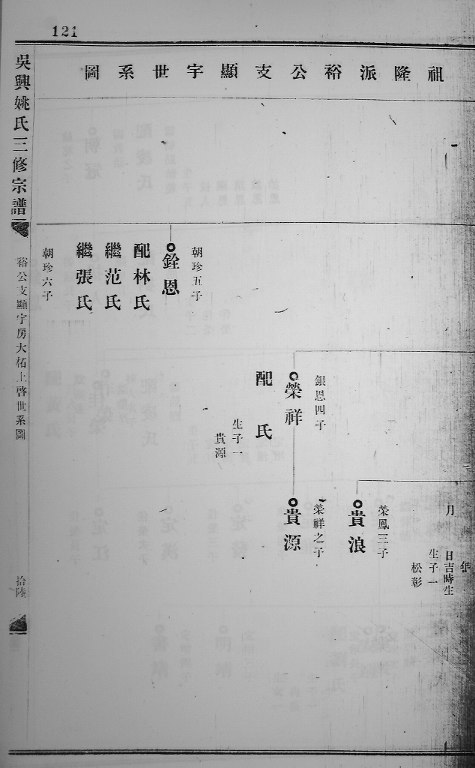 121
祖隆派裕公支顯宇世系圖
年
月 日吉時生
生子一
松彰
榮鳳三子
貴浪
銀恩四子
榮祥
配 氏
生子一
貴源
榮祥之子
貴源
朝珍五子
銓恩
配林氏
繼范氏
繼張氏
朝珍六子
吳興姚氏三修宗譜
裕公支顯宇房大柘上啓世系圖
拾陸